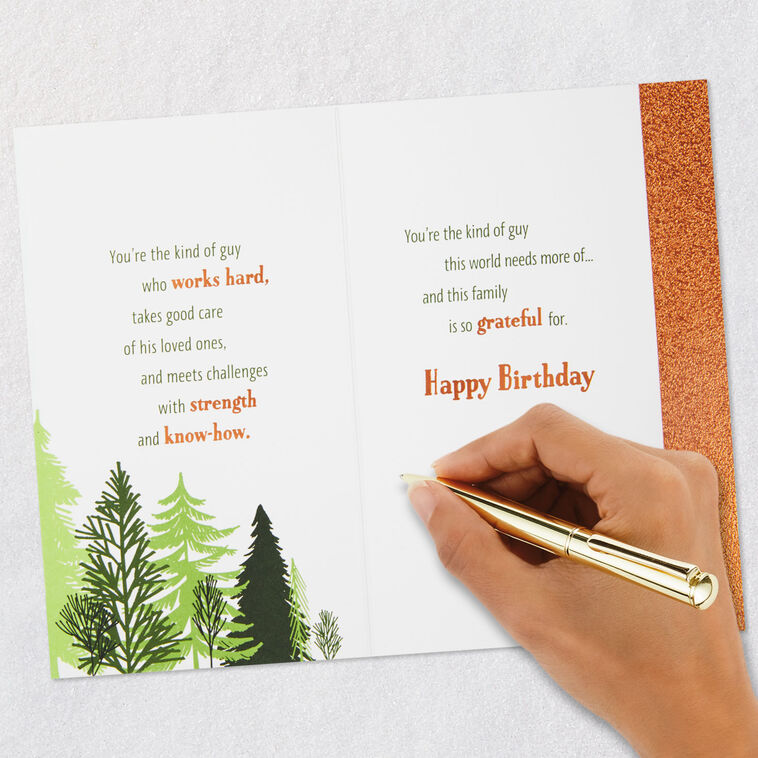 You're the kind of guy
who works hard,
takes good care
of his loved ones,
and meets challenges
with strength
and know-how.
You're the kind of guy
this world needs more of...
and this family
is so grateful for.
Happy Birthday